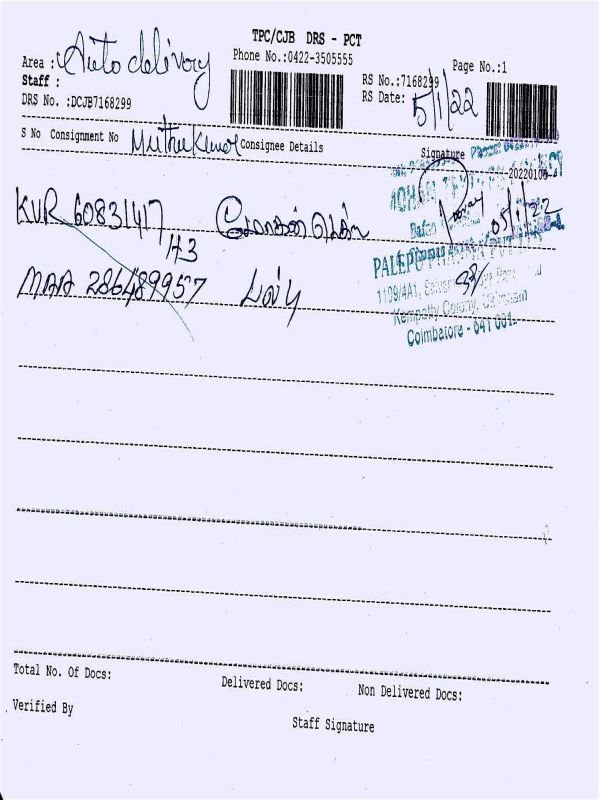 TPC/CJB DRS - PCT
Phone No.:0422-3505555
Page No.:1
Area : Auto delivery
Staff :
RS No.:7168299
RS Date: 5/1/22
DRS No. :DCJB7168299
S No Consignment No Muthukumar Consignee Details Signature
20220105
KVR 60831417
/H3
05/1/22
MAA 286489957
PALEPU
1109/4A1,
Kempatty Colony,
Coimbatore - 641 001.
Total No. Of Docs: Delivered Docs: Non Delivered Docs:
Verified By
Staff Signature